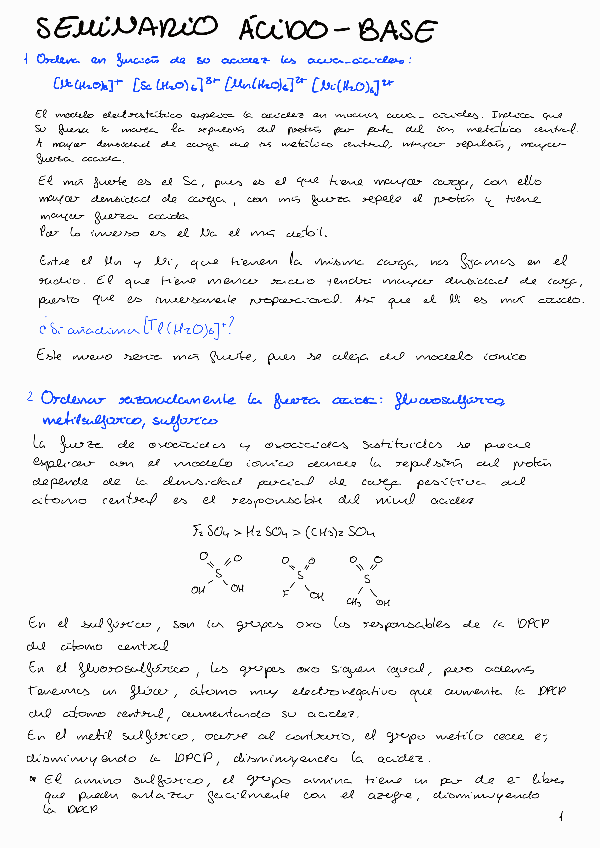 SEMINARIO ÁCIDO-BASE
1 Ordena en función de su acidez los acua-ácidos:
[Na(H2O)6]+ [Sc(H2O)6]3+ [Mn(H2O)6]2+ [Ni(H2O)6]2+
El modelo electrostático explica la acidez en muchos acua-ácidos. Indica que
su fuerza la marca la repulsión del protón por parte del ion metálico central.
A mayor densidad de carga del ion metálico central, mayor repulsión, mayor
fuerza ácida.
El más fuerte es el Sc, pues es el que tiene mayor carga, con ello
mayor densidad de carga, con más fuerza repele el protón y tiene
mayor fuerza ácida
Por lo inverso es el Na el más débil.
Entre el Mn y Ni, que tienen la misma carga, nos fijamos en el
radio. El que tiene menor radio tendrá mayor densidad de carga,
puesto que es inversamente proporcional. Así que el Ni es más ácido.
¿Si añadimos [Tl(H2O)6]+?
Este nuevo sería más fuerte, pues se aleja del modelo iónico
2 Ordenar razonadamente la fuerza ácida: fluorosulfúrico,
metilsulfúrico, sulfúrico
La fuerza de oxoácidos y oxoácidos sustituidos se puede
explicar con el modelo iónico donde la repulsión del protón
depende de la densidad parcial de carga positiva del
átomo central es el responsable del nivel acidez
F2SO4 > H2SO4 > (CH3)2SO4
O O O O O O
S S S
OH OH F OH CH3 OH
En el sulfúrico, son los grupos oxo los responsables de la DPCP
del átomo central
En el fluorosulfúrico, los grupos oxo siguen igual, pero además
tenemos un flúor, átomo muy electronegativo que aumenta la DPCP
del átomo central, aumentando su acidez.
En el metil sulfúrico, ocurre al contrario, el grupo metilo cede e-,
disminuyendo la DPCP, disminuyendo la acidez.
* El amino sulfúrico, el grupo amina tiene un par de e- libres
que pueden enlazar fácilmente con el azufre, disminuyendo
la DPCP
1